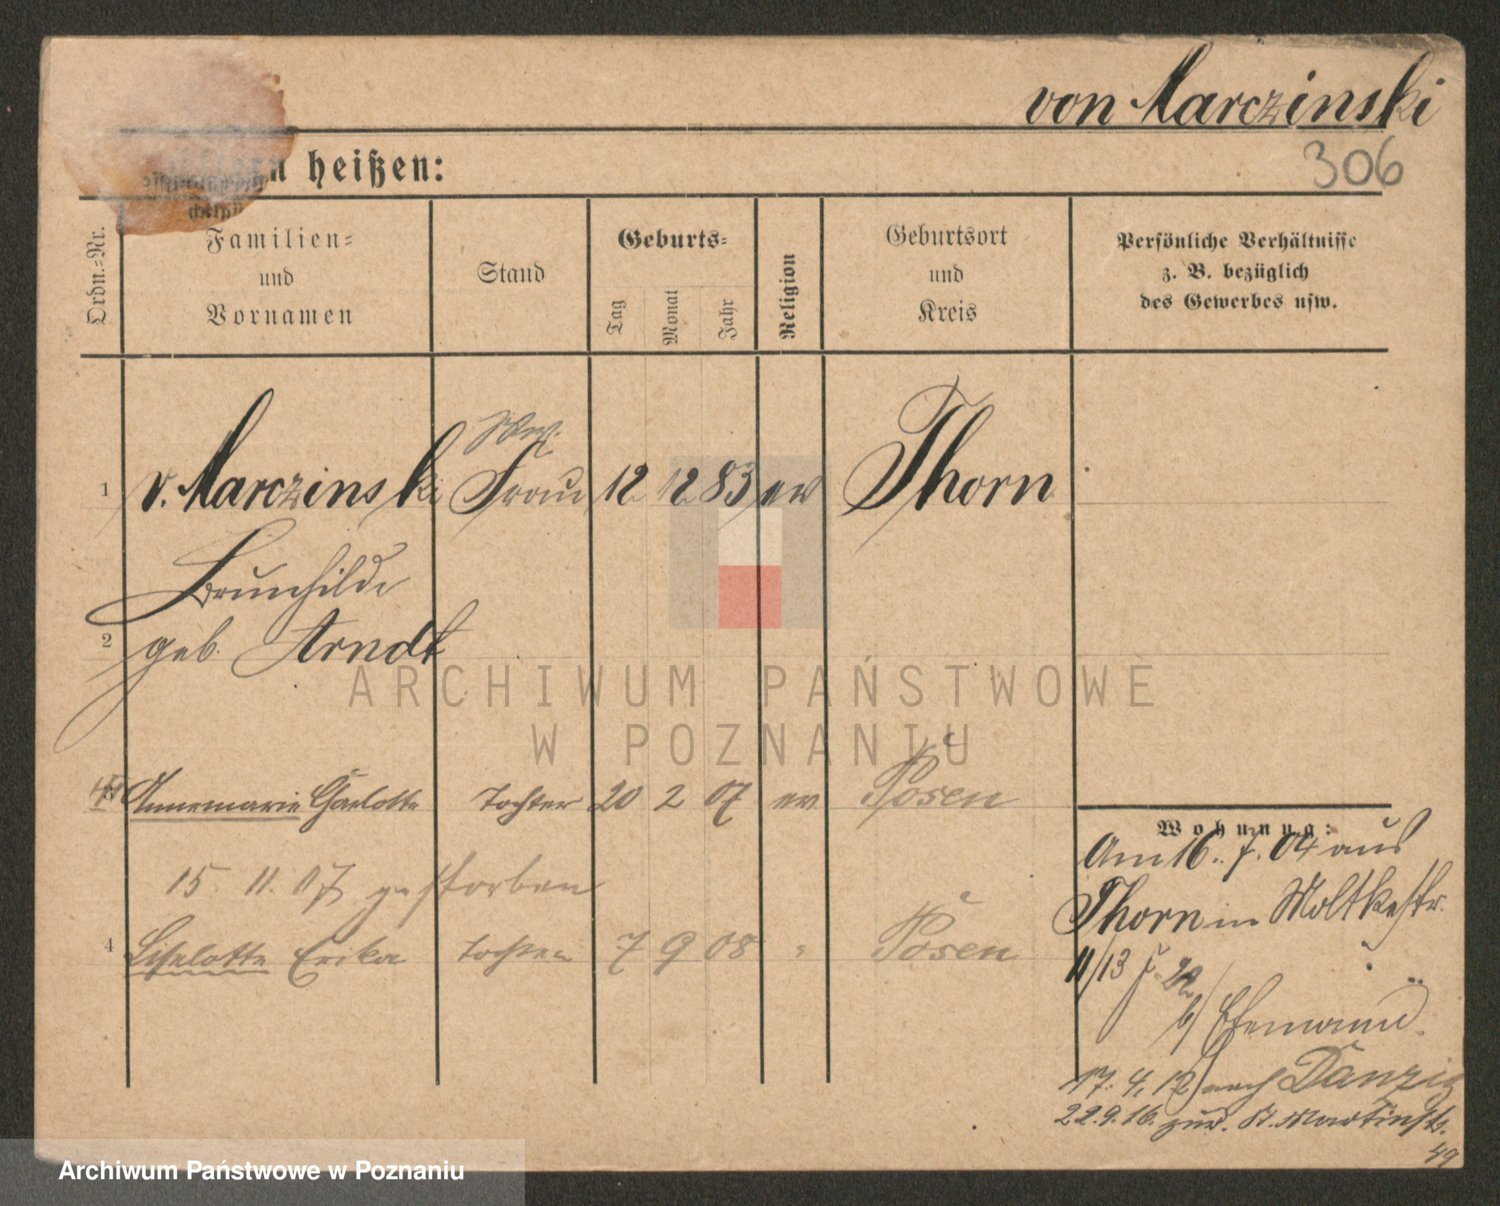 von Marczinski
306
heißen:
Ordn.-Nr.
Familien-
und
Vornamen
Stand
Geburts-
Tag
Monat
Jahr
Religion
Geburtsort
und
Kreis
Persönliche Verhältnisse
z. B. bezüglich
des Gewerbes usw.
Ww.
1 v. Marczinski Frau 12 12 83 ev Thorn
Brunhilde
2 geb. Arndt
ARCHIWUM PAŃSTWOWE
W POZNANIU
Annemarie Charlotte Tochter 20 2 07 ev Posen
15. 11. 07 gestorben
4 Liselotte Erika Tochter 7 9 08 " Posen
Wohnung:
Am 16. 7. 04 aus
Thorn in Moltkestr.
11/13
b/ Ehemann.
17. 4. 12 nach Danzig
22.9.16. zur. St. Martinstr.
49
Archiwum Państwowe w Poznaniu